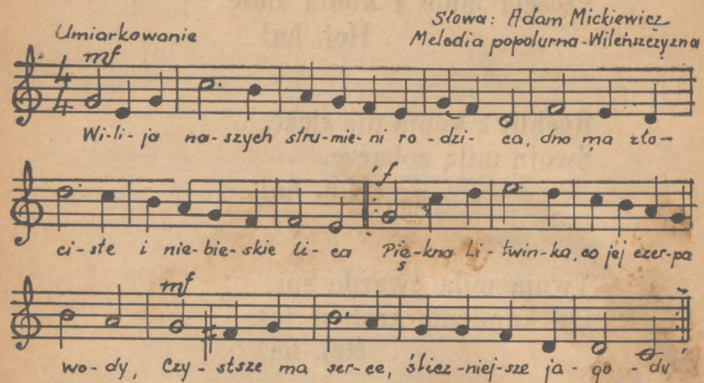 Słowa: Adam Mickiewicz
Umiarkowanie
Melodia popolurna-Wileńszczyzna
mf
4
4
Wi-li-ja na-szych stru-mie-ni ro-dzi-ca, dno ma zło-
f
ci-ste i nie-bie-skie li-ca Pię-kna Li-twin-ka, co jej czer-pa
mf
wo-dy, Czy-stsze ma ser-ce, ślicz-niej-sze ja-go-dy